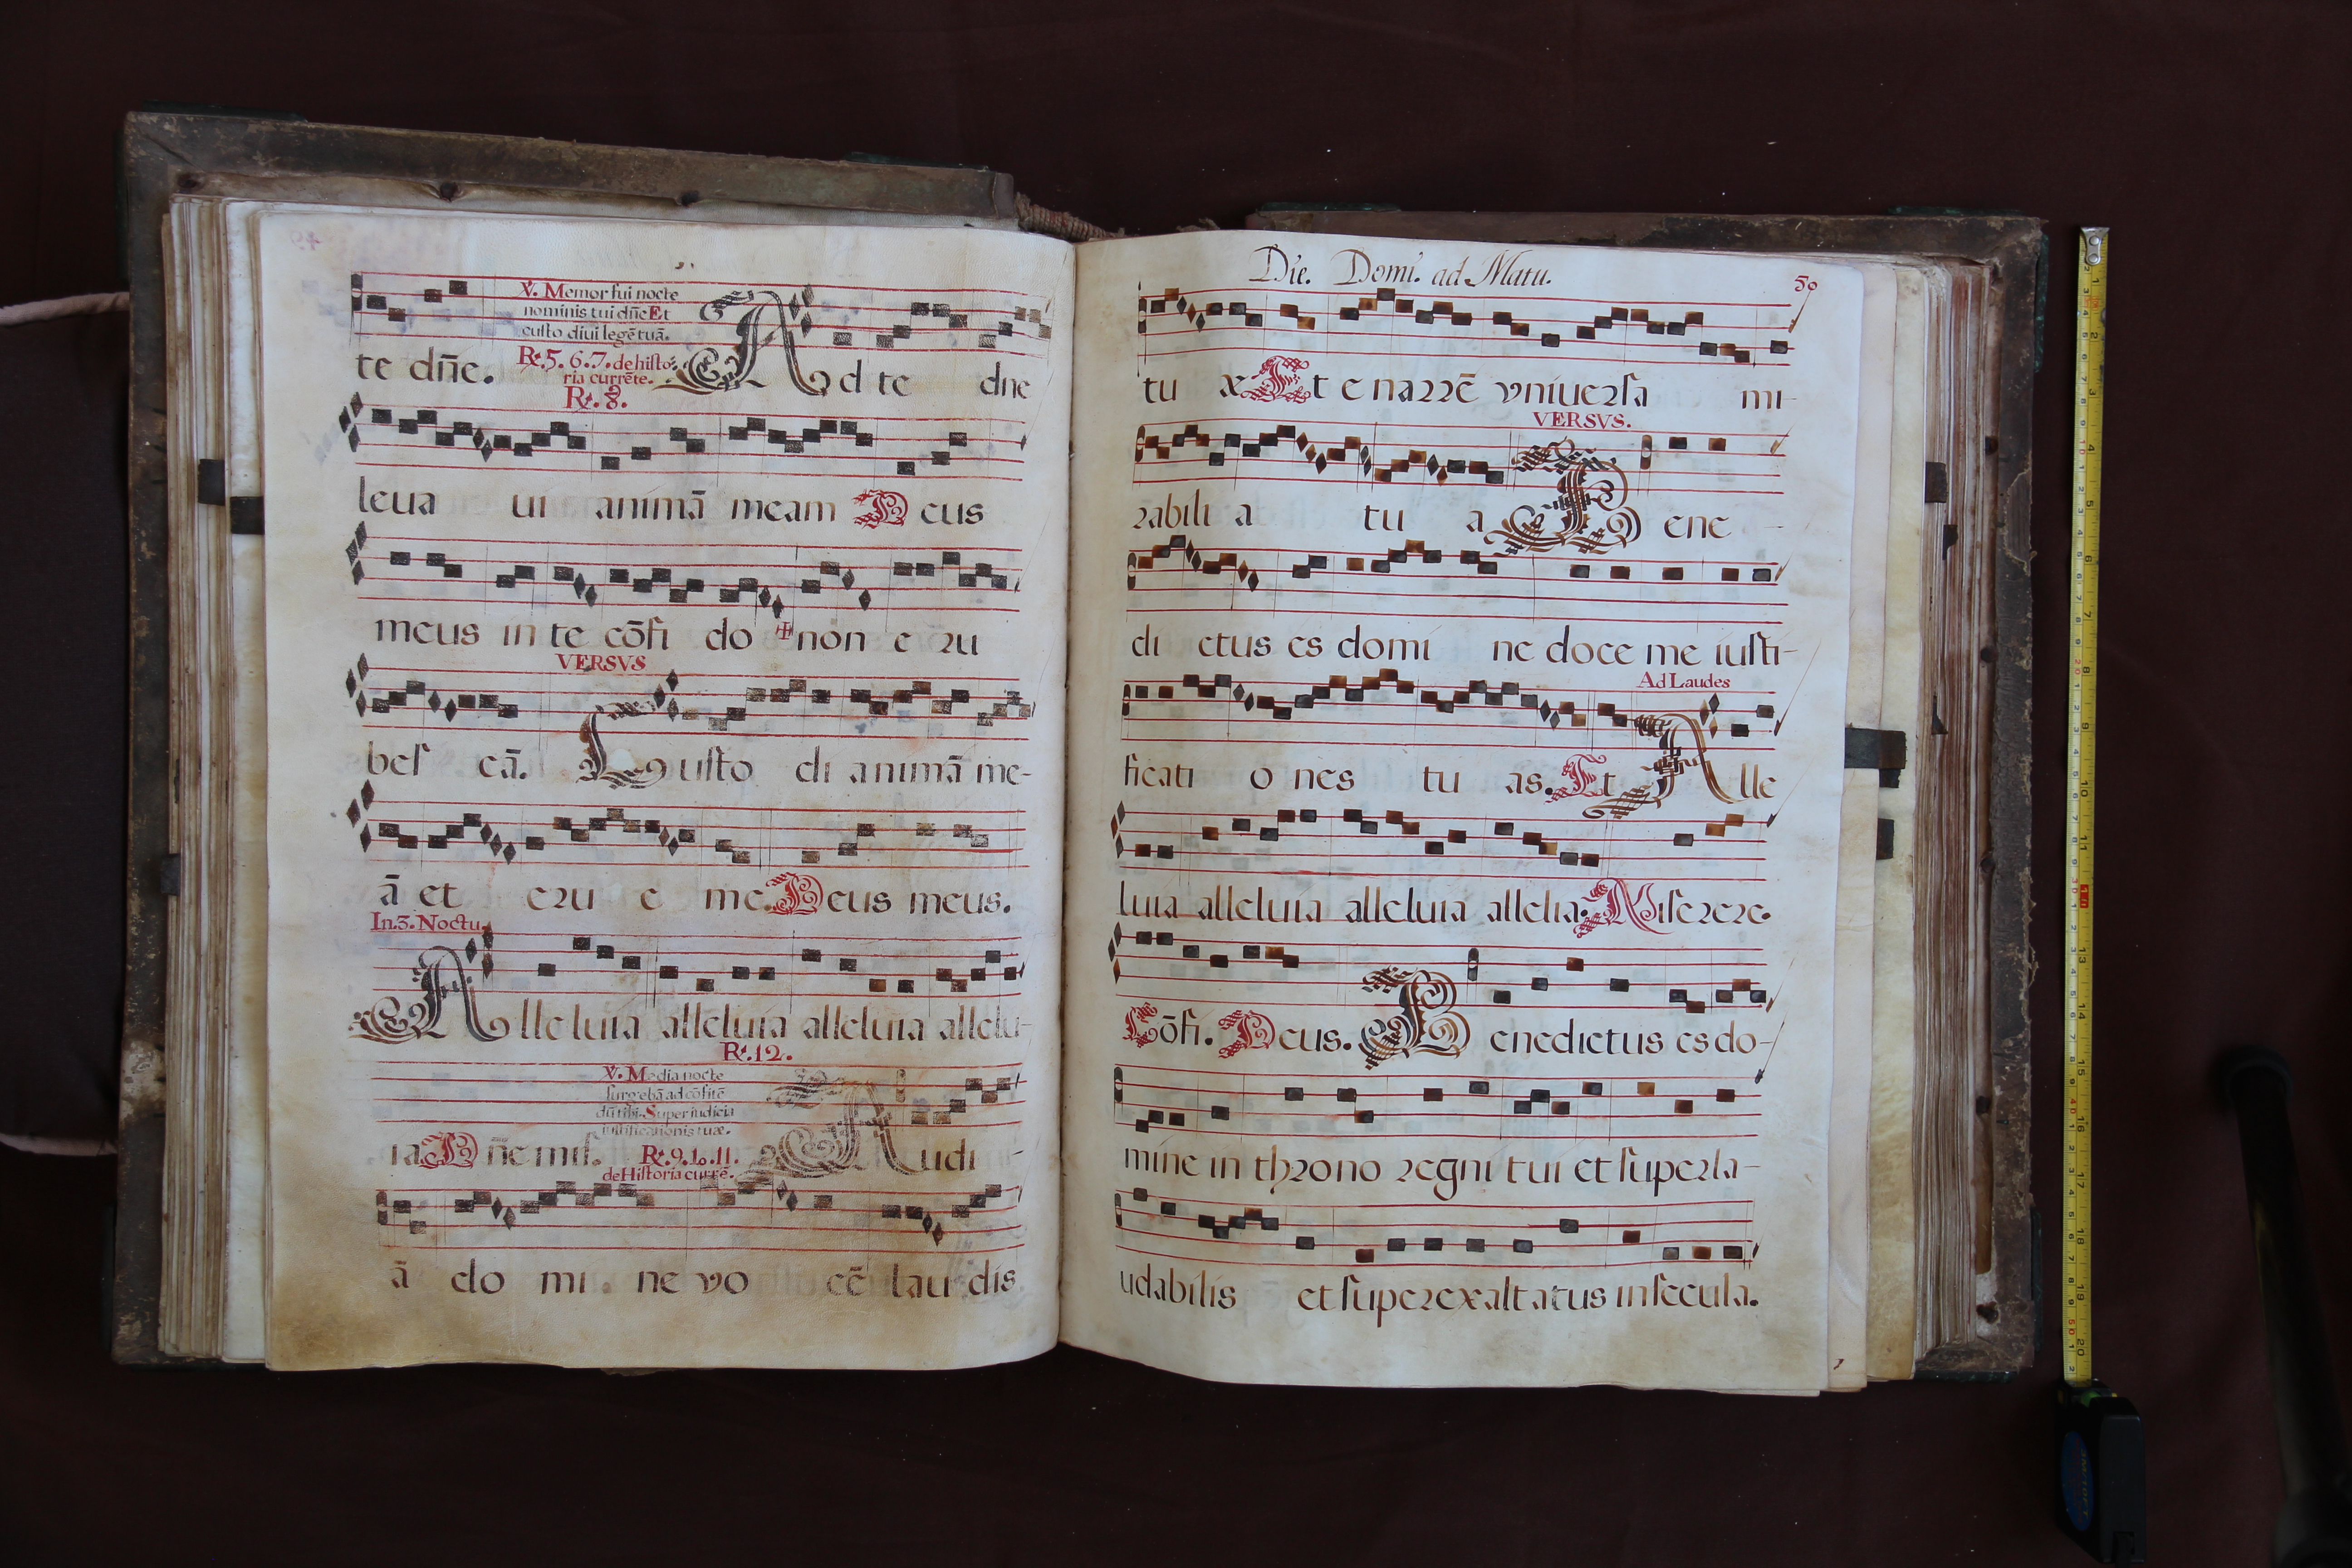 ℣. Memor fui nocte
nominis tui dñe Et
custo diui legē tuā.
te dñe. ℟. 5. 6. 7. de histo:
ria currēte.
Ad te dne
℟. 8.
leua ui animā meam Deus
meus in te cōfi do ✠ non e ru
VERSVS
bef cā. Custo di animā me-
ā et eru e me. Deus meus.
In. 3. Noctu.
Alleluia alleluia alleluia allelu-
℟. 12.
℣. Media nocte
surgebā ad cōfitē
dū tibi. Super iudicia
iustificationis tuæ.
ia Dñe mis. ℟. 9. 10. 11.
de Historia currē.
Audi-
ā do mi. ne vo cē lau dis
Die. Domi. ad Matu.
50
tu æ Et enarrē vniuersa mi-
VERSVS.
rabili a tu a Bene-
di ctus es domi ne doce me iusti-
Ad Laudes
ficati o nes tu as. Et Alle
luia alleluia alleluia allelia. Miserere.
Cōfi. Deus. Benedictus es do-
mine in throno regni tui et superla-
udabilis et superexaltatus in secula.